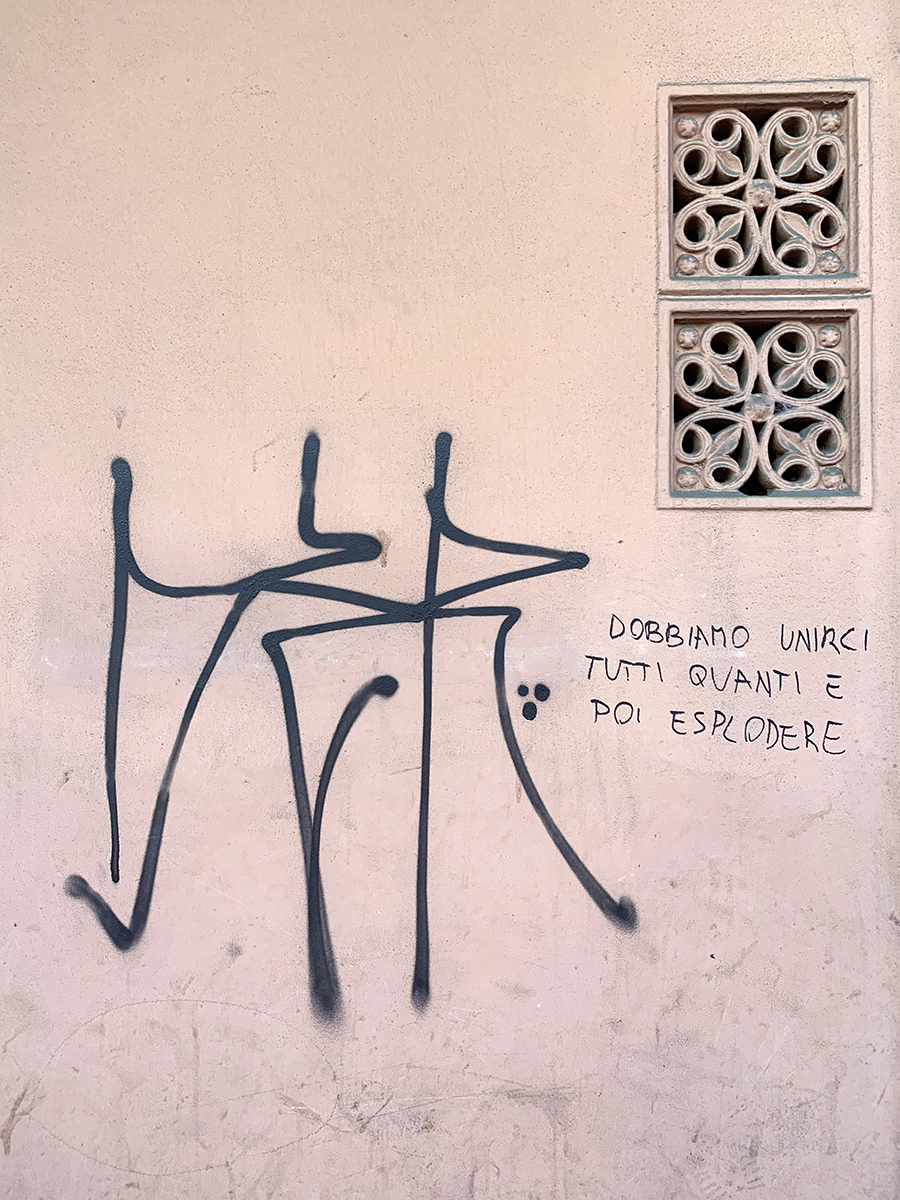 DOBBIAMO UNIRCI
TUTTI QUANTI E
POI ESPLODERE